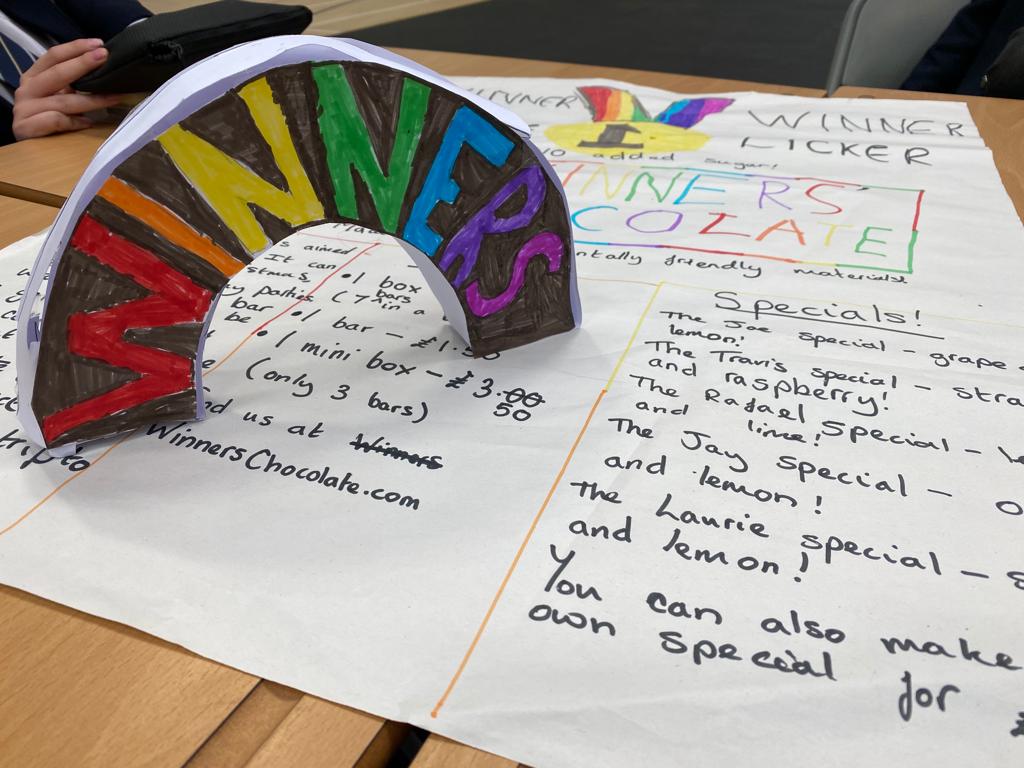 WINNERS
WINNER
1
WINNER
LICKER
added sugar!
INNERS
COLATE
friendly materials!
s aimed
It can
parties
bar
be
• 1 box
(7 bars
in a
• 1 bar – £1.50
• 1 mini box – £3.00
50
(only 3 bars)
us at Winners
WinnersChocolate.com
Specials!
The Joe special – grape
lemon!
The Travis special – stra
and raspberry!
The Rafael special – le
and lime!
The Jay special – o
and lemon!
The Laurie special – s
and lemon!
You can also make
own special for £